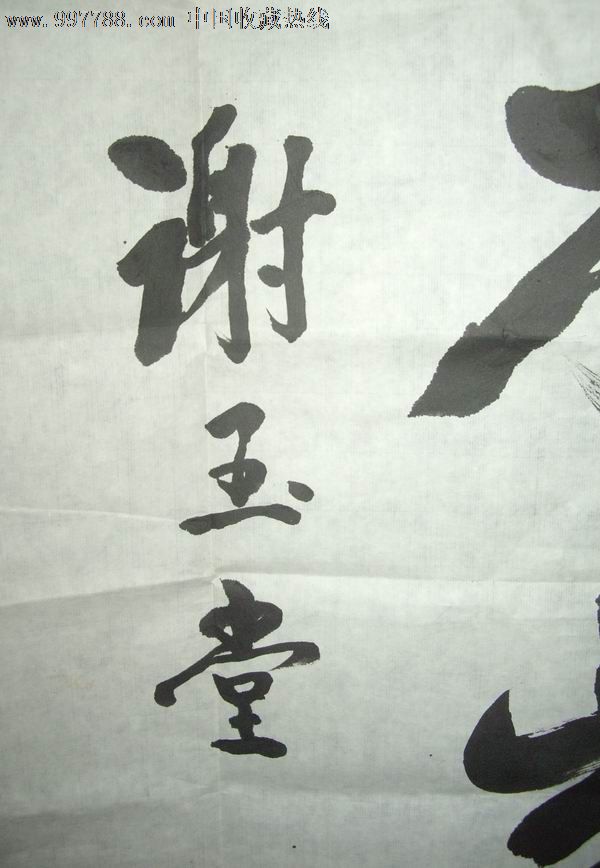 www.997788.com 中国收藏热线
谢玉堂